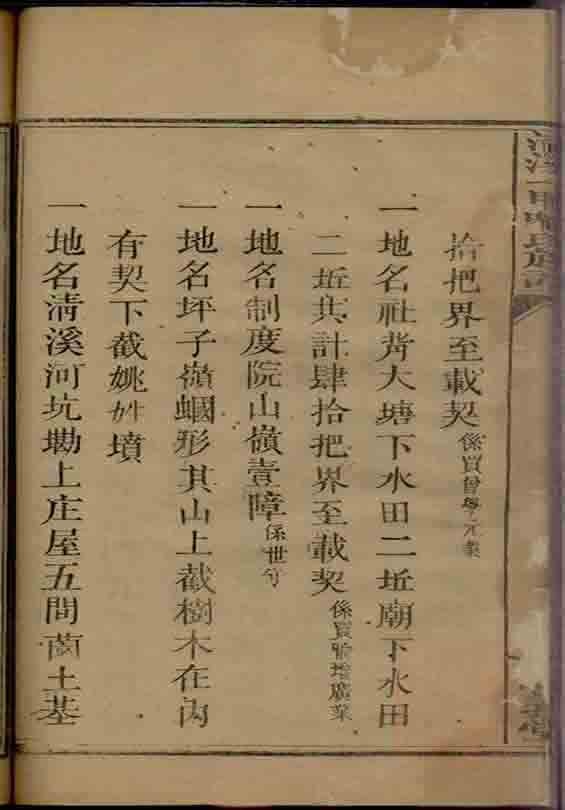 拾把界至載契係買曾粵
一地名社背大塘下水田二坵廟下水田
二坵共計肆拾把界至載契係買 增廣業
一地名制度院山嶺壹障係世分
一地名坪子嶺蟈形其山上截樹木在內
有契下截姚姓墳
一地名清溪河坑墈上庄屋五間 土基